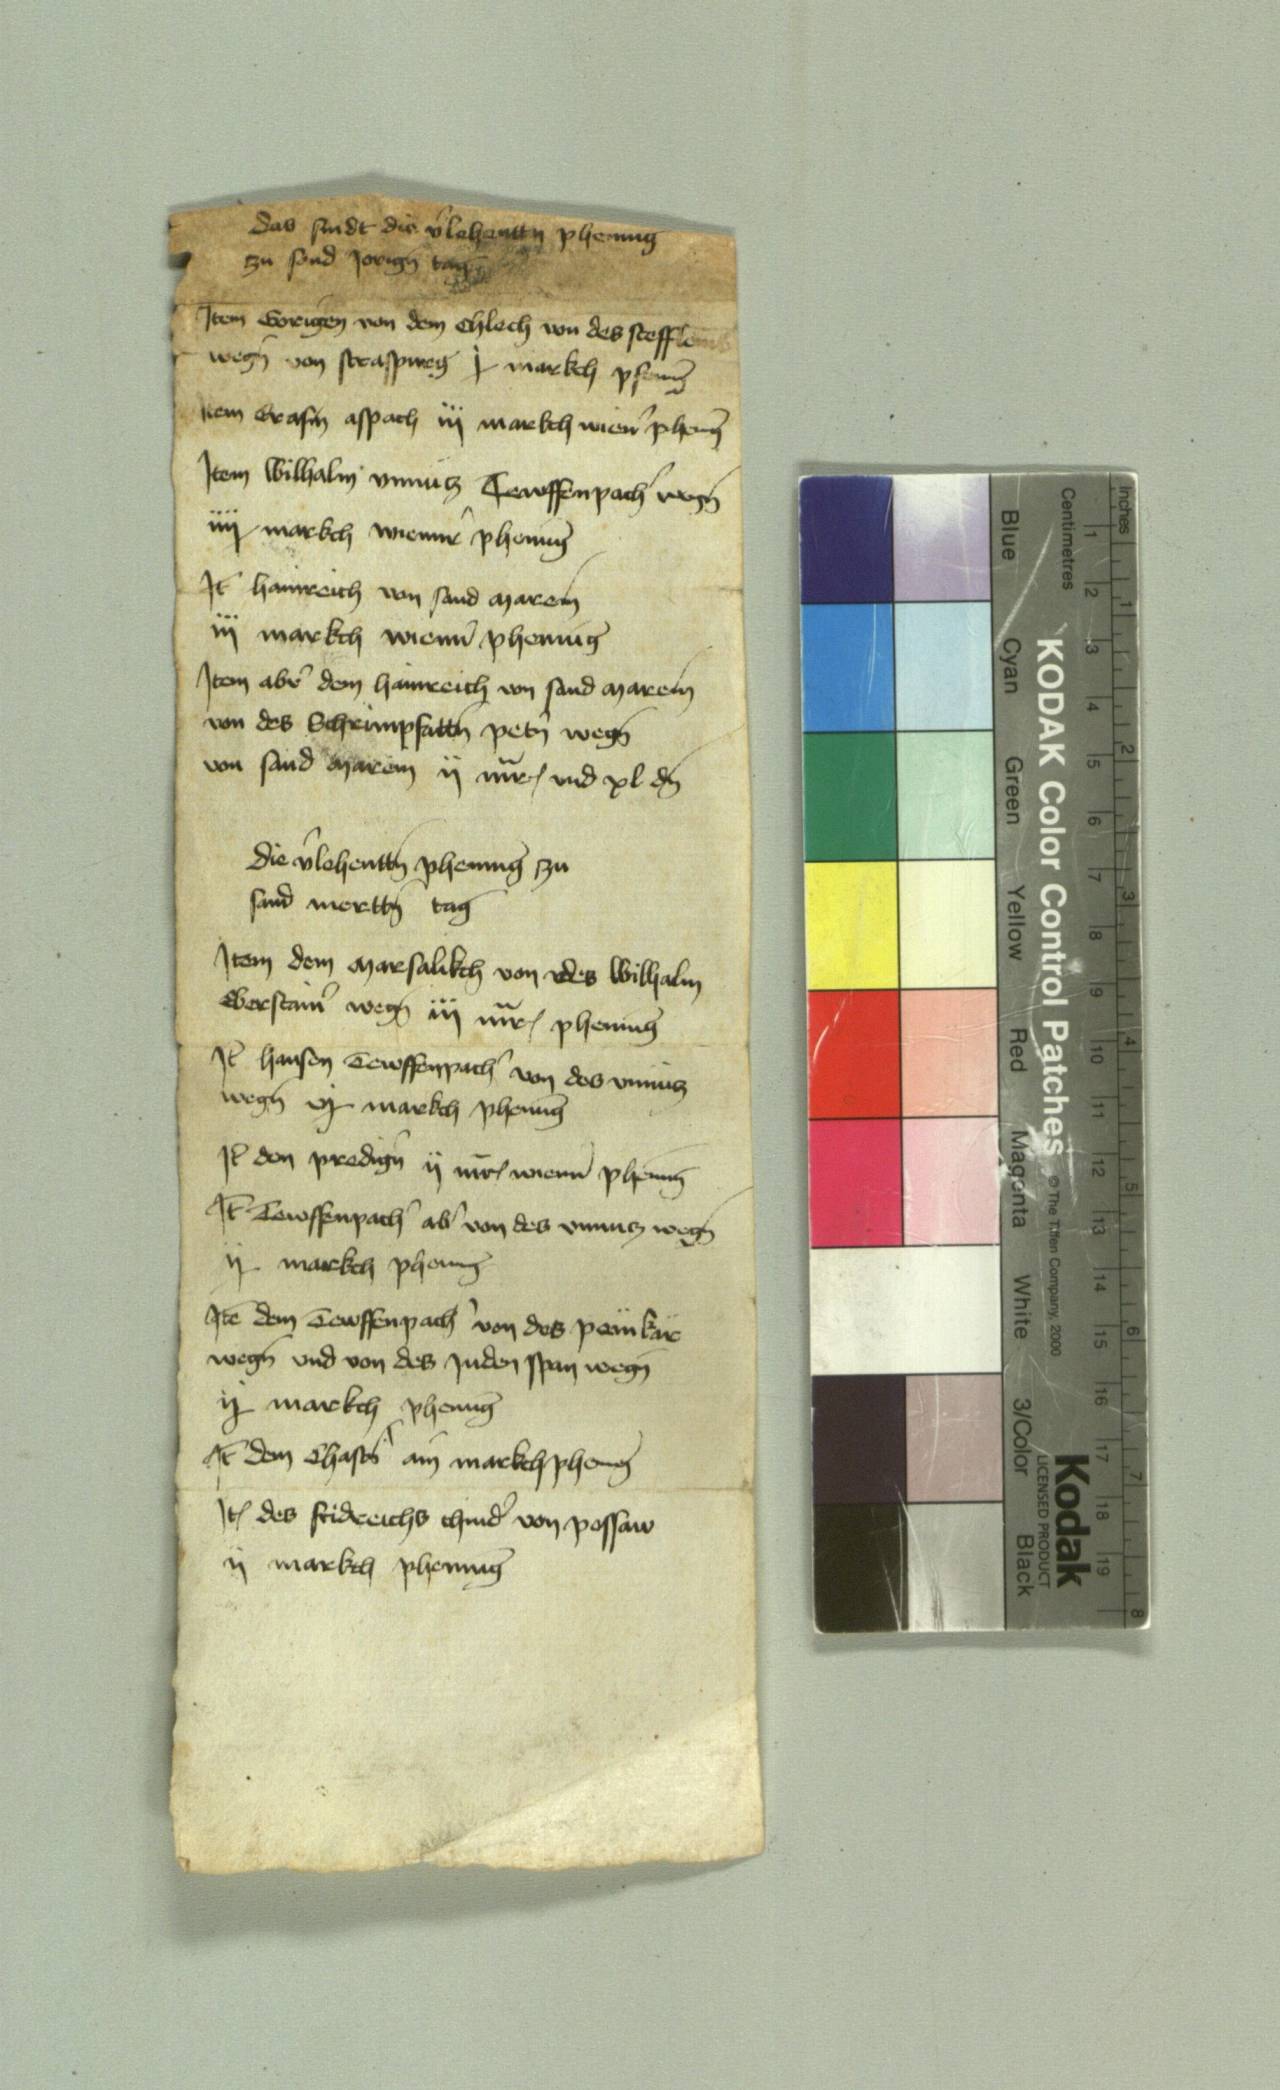 das sindt die v̉lehenttn phenning
zu sand Jorign tag
Item Gorigen von dem Chlech von des steffleins
wegn von straspurg j markch pfenig
Item Erasm aspach iij markch wien̉ phenig
Item Wilhalm vnnucz Tewffenpach̉ wegn
iiij markch wienn̉ phening
It̄ hainreich von sand marein
iij markch wienn̉ phening
Item ab̉ dem hainreich von sand marein
von des Schrimpfattn petn̉ wegn
von sand marein ij mr̄ vnd xl dn
die v̉lehenttn phening zu
sand merttn tag
Item dem marsalikch von des Wilhalm
Eberstain̉ wegn iij mr̄ phening
It̄ hansen Tewffenpach̉ von des vnnucz
wegn vj markch phening
It̄ den predign̉ ij mr̄ wienn̉ phenig
It̄ Tewffenpach̉ ab̉ von des vnnucz wegn
ij markch phening
Itē dem Tewffenpach̉ von des
wegn vnd von des Juden span wegn
ij markch phening
It̄ dem Chastn̉ ain markch phenig
It̄ des fridreichs chind̉ von possaw
ij markch phening
Inches
Centimetres
1 2 3 4 5 6 7 8 9 10 11 12 13 14 15 16 17 18 19
1 2 3 4 5 6 7 8
KODAK Color Control Patches © The Tiffen Company, 2000
Kodak
LICENSED PRODUCT
Blue Cyan Green Yellow Red Magenta White 3/Color Black